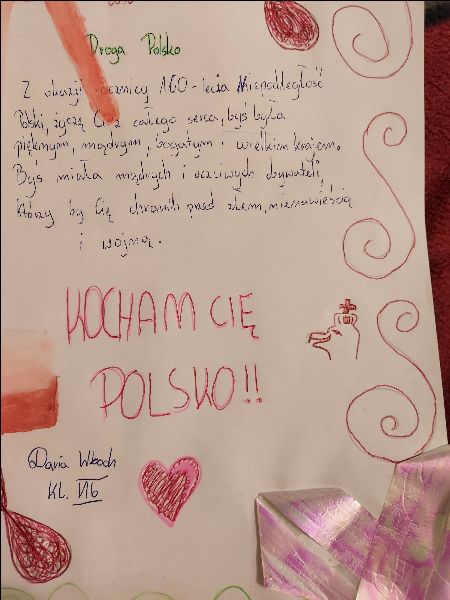 Droga Polsko
Z okazji rocznicy 100-lecia Niepodległość
Polski, życzę Ci z całego serca, byś była
pięknym, mądrym, bogatym i wielkim krajem.
Byś miała mądrych i uczciwych obywateli,
którzy by Cię chronili przed złem, nienawiścią
i wojną.
KOCHAM CIĘ
POLSKO!!
Daria
KL. VIb